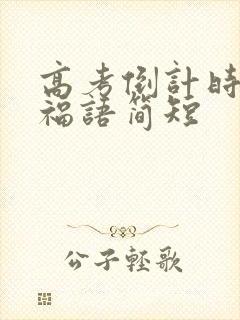 高考倒計時
福語简短
公子輕歌